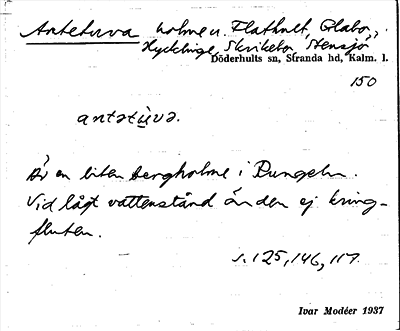 Antetuva holme u. Flathult, Glabo,
Hycklinge, Skrikebo, Stensjö
Döderhults sn, Stranda hd, Kalm. l.
150
antətùvə.
Är en liten bergholme i Dungeln.
Vid lågt vattenstånd är den ej kring-
fluten.
s. 125, 146, 117.
Ivar Modéer 1937